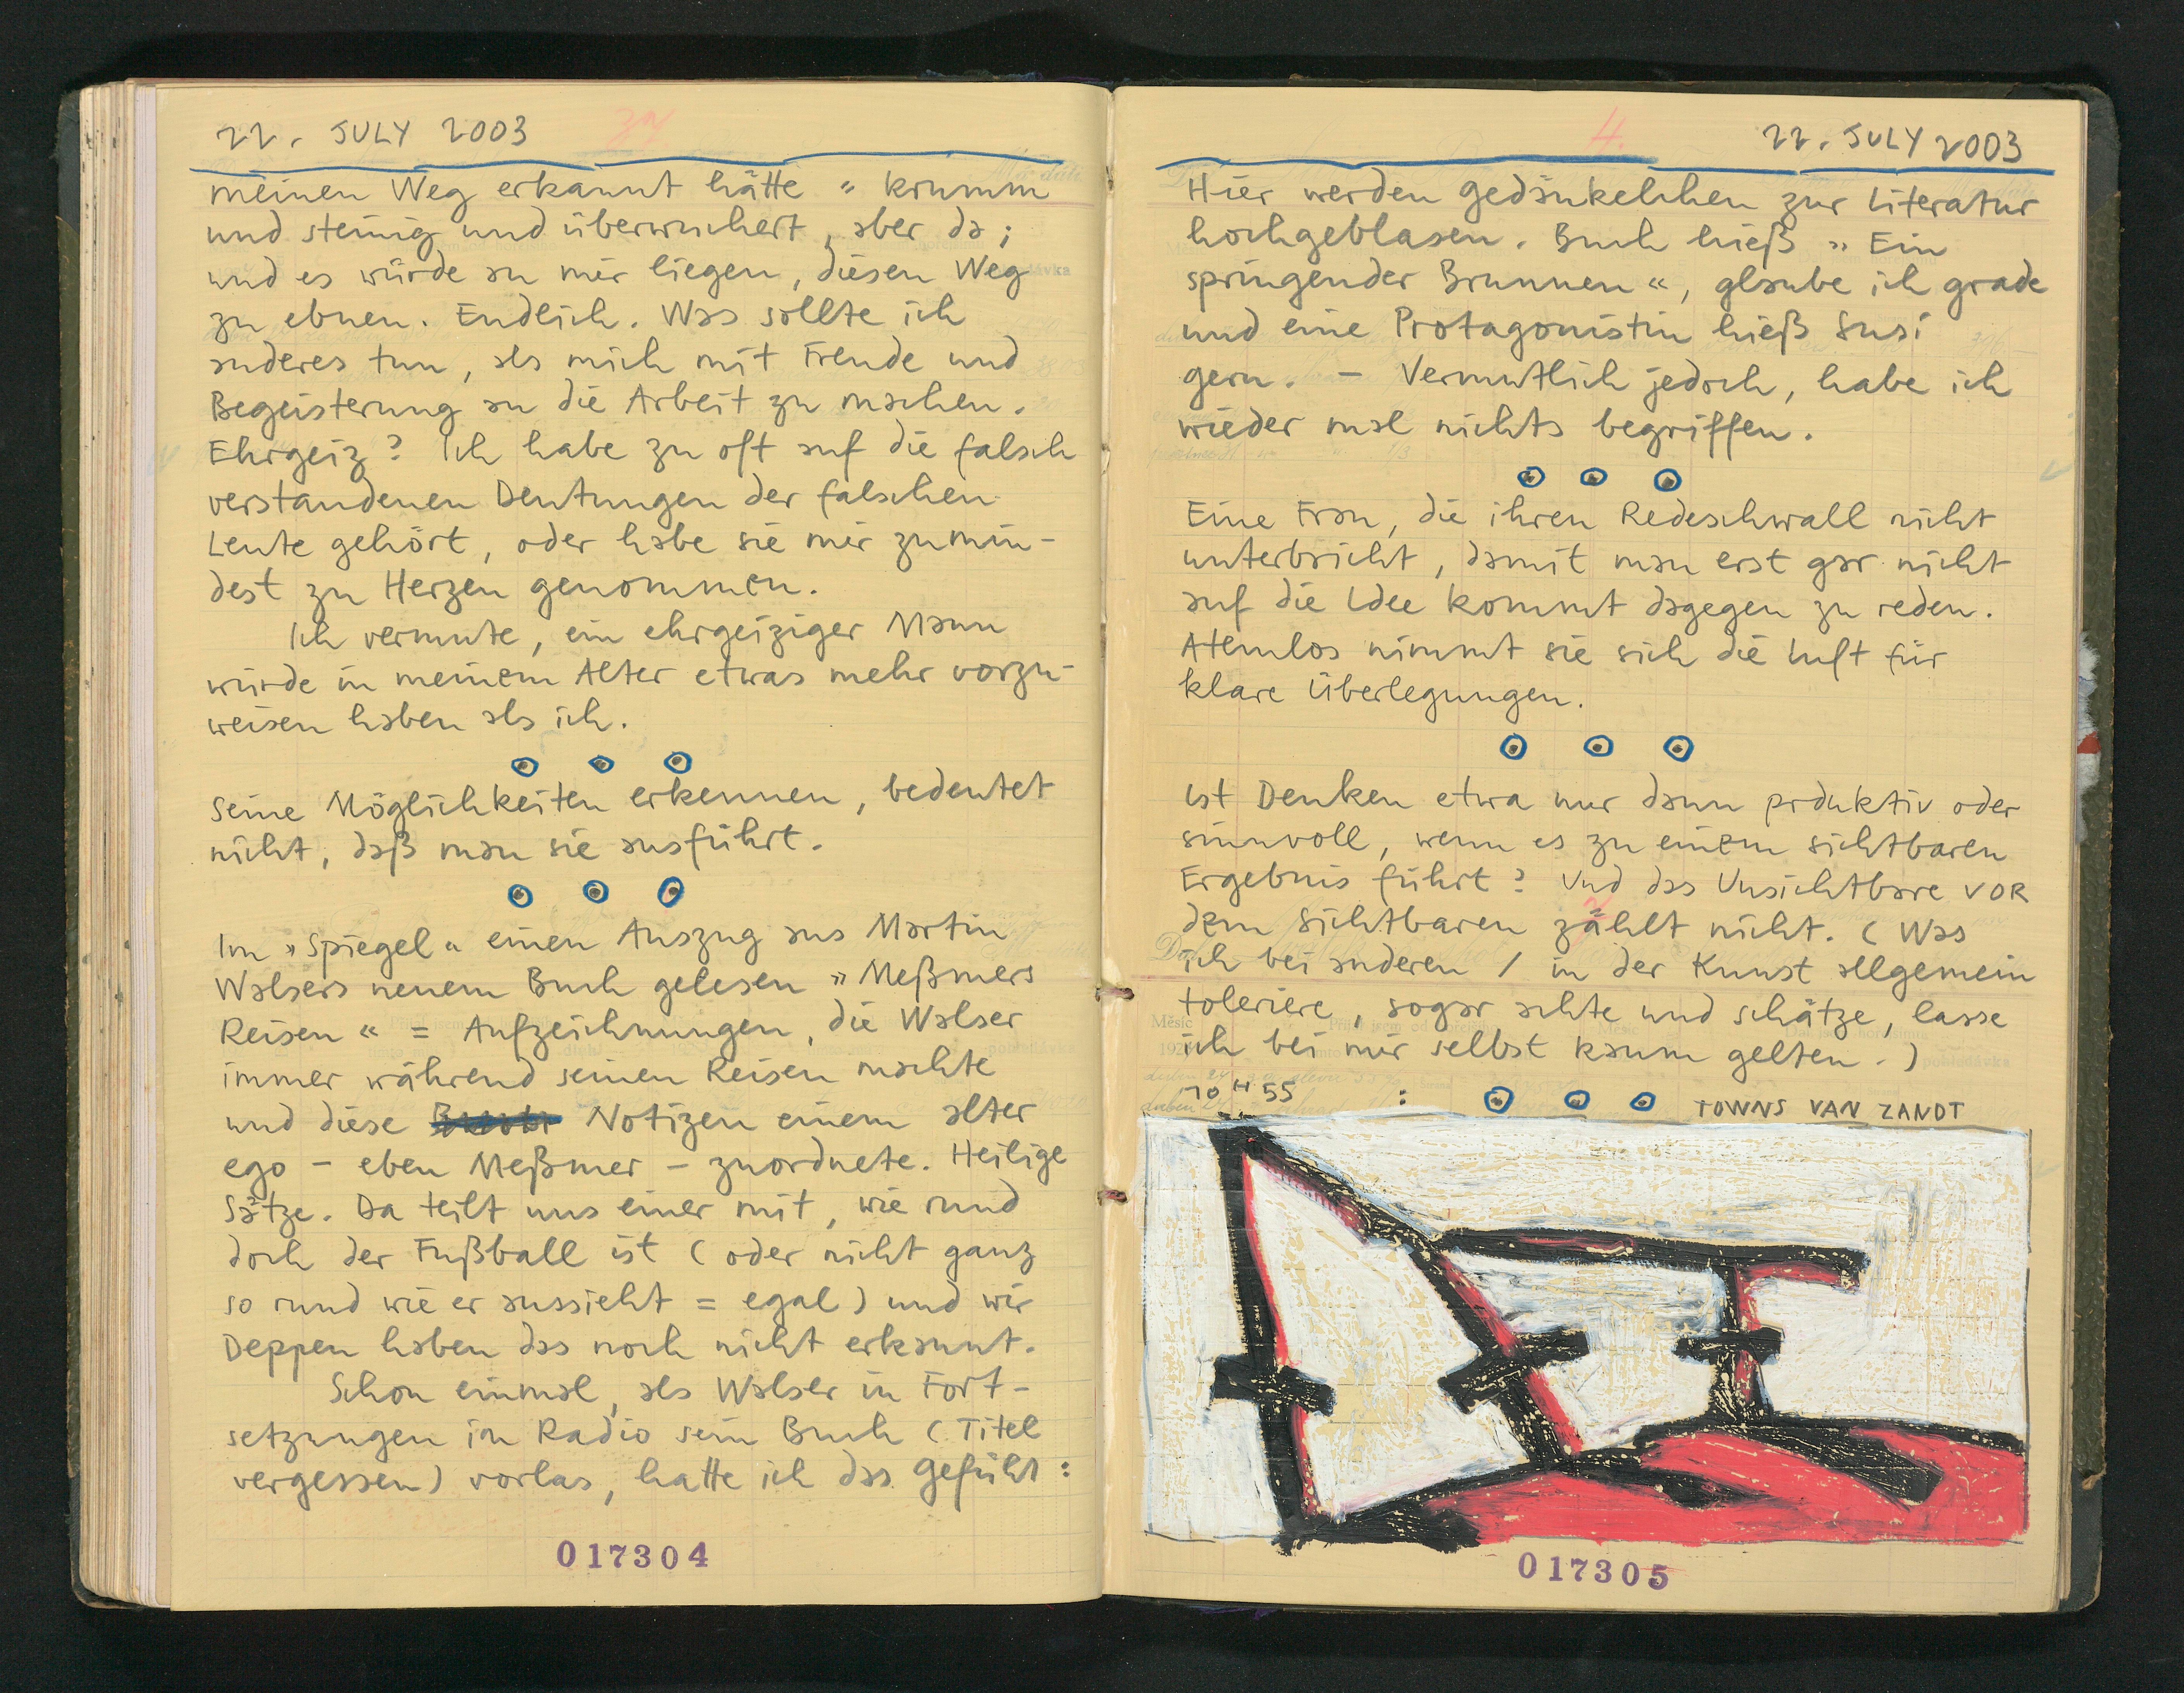 22. JULY 2003
meinen Weg erkannt hätte “ krumm
und steinig und überwuchert, aber da;
und es würde an mir liegen, diesen Weg
zu ebnen. Endlich. Was sollte ich
anderes tun, als mich mit Freude und
Begeisterung an die Arbeit zu machen.
Ehrgeiz? Ich habe zu oft auf die falsch
verstandenen Deutungen der falschen
Leute gehört, oder habe sie mir zumin-
dest zu Herzen genommen.
Ich vermute, ein ehrgeiziger Mann
würde in meinem Alter etwas mehr vorzu-
weisen haben als ich.
Seine Möglichkeiten erkennen, bedeutet
nicht, daß man sie ausführt.
Im »Spiegel« einen Auszug aus Martin
Walsers neuem Buch gelesen »Meßmers
Reisen« = Aufzeichnungen, die Walser
immer während seinen Reisen machte
und diese Notizen einem alter
ego – eben Meßmer – zuordnete. Heilige
Sätze. Da teilt uns einer mit, wie rund
doch der Fußball ist (oder nicht ganz
so rund wie er aussieht = egal) und wir
Deppen haben das noch nicht erkannt.
Schon einmal, als Walser in Fort-
setzungen im Radio sein Buch (Titel
vergessen) vorlas, hatte ich das Gefühl:
017304
22. JULY 2003
Hier werden Gedänkelchen zur Literatur
hochgeblasen. Buch hieß »Ein
springender Brunnen«, glaube ich grade
und eine Protagonistin hieß Susi
gern. – Vermutlich jedoch, habe ich
wieder mal nichts begriffen.
Eine Frau, die ihren Redeschwall nicht
unterbricht, damit man erst gar nicht
auf die Idee kommt dagegen zu reden.
Atemlos nimmt sie sich die Luft für
klare Überlegungen.
Ist Denken etwa nur dann prduktiv oder
sinnvoll, wenn es zu einem sichtbaren
Ergebnis führt? Und das Unsichtbare VOR
dem Sichtbaren zählt nicht. (Was
ich bei anderen / in der Kunst allgemein
toleriere, sogar achte und schätze, lasse
ich bei mir selbst kaum gelten.)
10 H 55 : TOWNS VAN ZANDT
017305